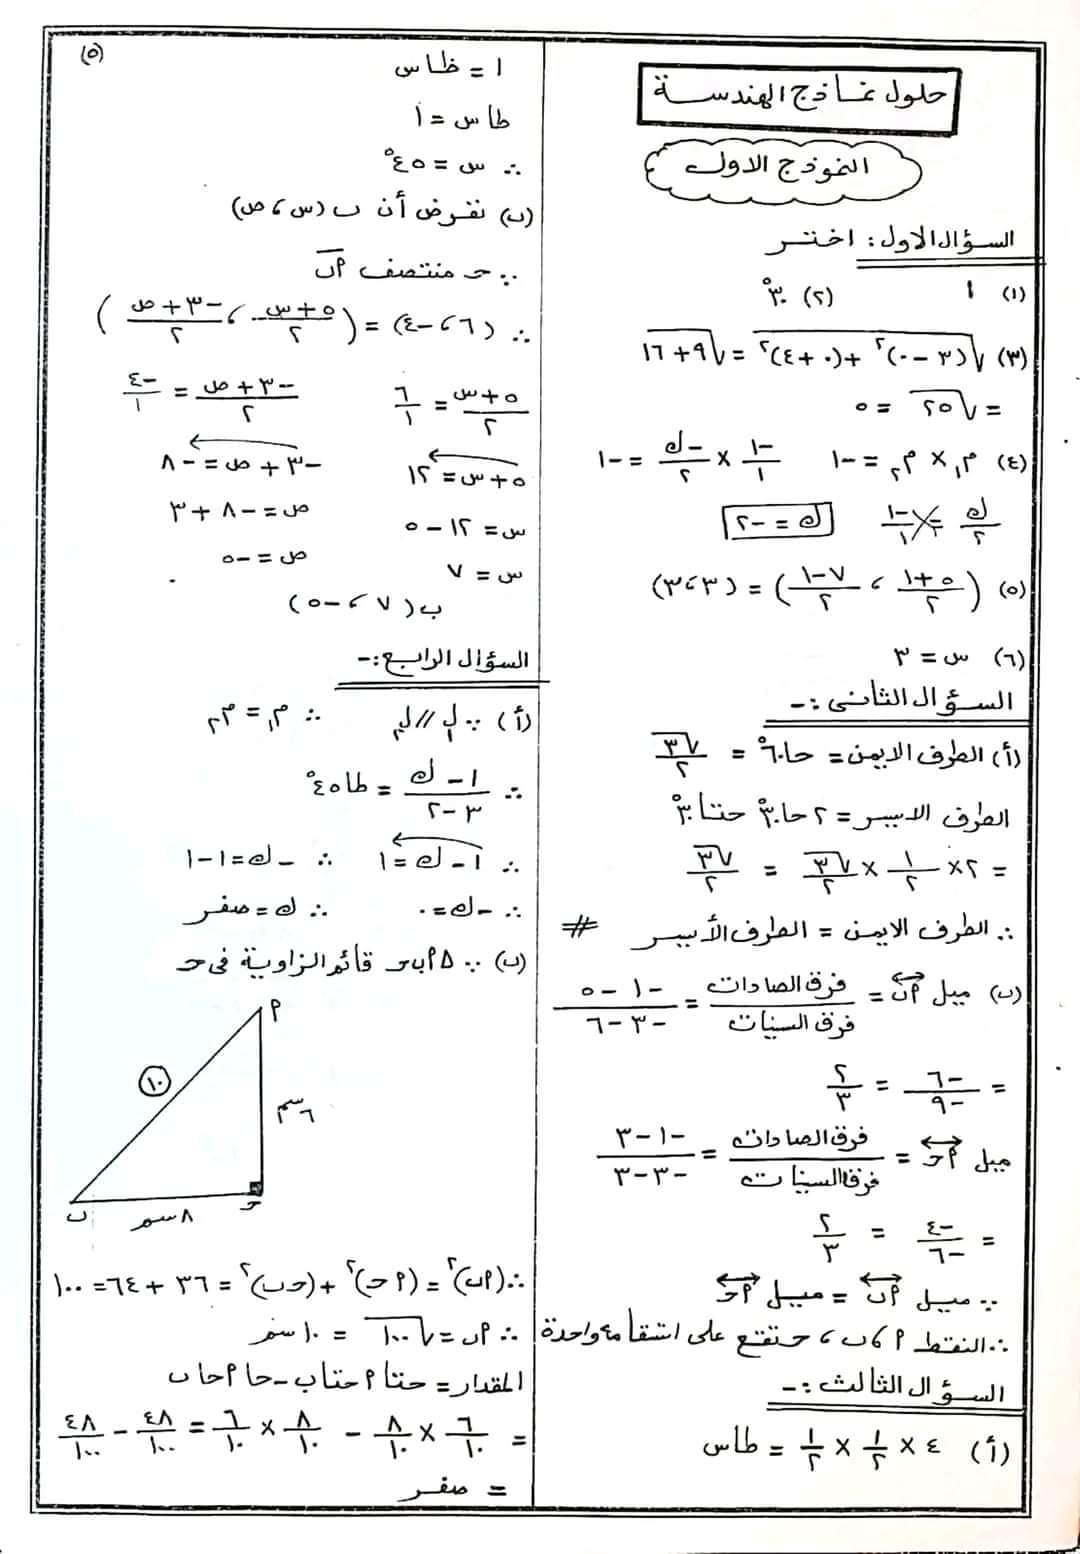 (٥)
حلول نماذج الهندسة
النموذج الاول
السؤال الاول: اختر
(١) ١ (٢) ٣٠°
(٣) √((٣ - ٠)² + (٠ + ٤)²) = √(٩ + ١٦)
= √٢٥ = ٥
(٤) م١ × م٢ = -١ -١/١ × -ك/٢ = -١
ك/٢ = -١/١ ك = -٢
(٥) (٥+١/٢ ، ٧-١/٢) = (٣،٣)
(٦) س = ٣
السؤال الثانى :-
(أ) الطرف الايمن = حا٦٠° = √٣/٢
الطرف الايسر = ٢ حا٣٠° حتا٣٠°
= ٢ × ١/٢ × √٣/٢ = √٣/٢
∴ الطرف الايمن = الطرف الأيسر #
(ب) ميل أب = فرق الصادات/فرق السينات = -١ -٥/-٣ -٦
= -٦/-٩ = ٢/٣
ميل أحـ = فرق الصادات/فرق السينات = -١-٣/-٣-٣
= -٤/-٦ = ٢/٣
∵ ميل أب = ميل أحـ
∴ النقط أ ، ب ، حـ تقع على استقامة واحدة
السؤال الثالث :-
(أ) ٤ × ١/٢ × ١/٢ = طاس
١ = ظاس
طاس = ١
∴ س = ٤٥°
(ب) نفرض أن ب (س ، ص)
∵ حـ منتصف أب
∴ (٦ ، -٤) = (٥+س/٢ ، -٣+ص/٢)
٥+س/٢ = ٦/١ -٣+ص/٢ = -٤/١
٥+س = ١٢ -٣+ص = -٨
س = ١٢ - ٥ ص = -٨ + ٣
س = ٧ ص = -٥
ب (٧ ، -٥)
السؤال الرابع :-
(أ) ∵ ل١ // ل٢ ∴ م١ = م٢
∴ ١ - ك/٣ - ٢ = طا٤٥°
∴ ١ - ك = ١ ∴ -ك = ١-١
∴ -ك = ٠ ∴ ك = صفر
(ب) ∵ Δ أ ب حـ قائم الزاوية فى حـ
أ
١٠
٦سم
ب ٨سم حـ
∴ (أب)² = (أحـ)² + (حـب)² = ٣٦ + ٦٤ = ١٠٠
∴ أب = √١٠٠ = ١٠ سم
المقدار = حتا أ حتاب - حا أ حاب
= ٦/١٠ × ٨/١٠ - ٨/١٠ × ٦/١٠ = ٤٨/١٠٠ - ٤٨/١٠٠
= صفر